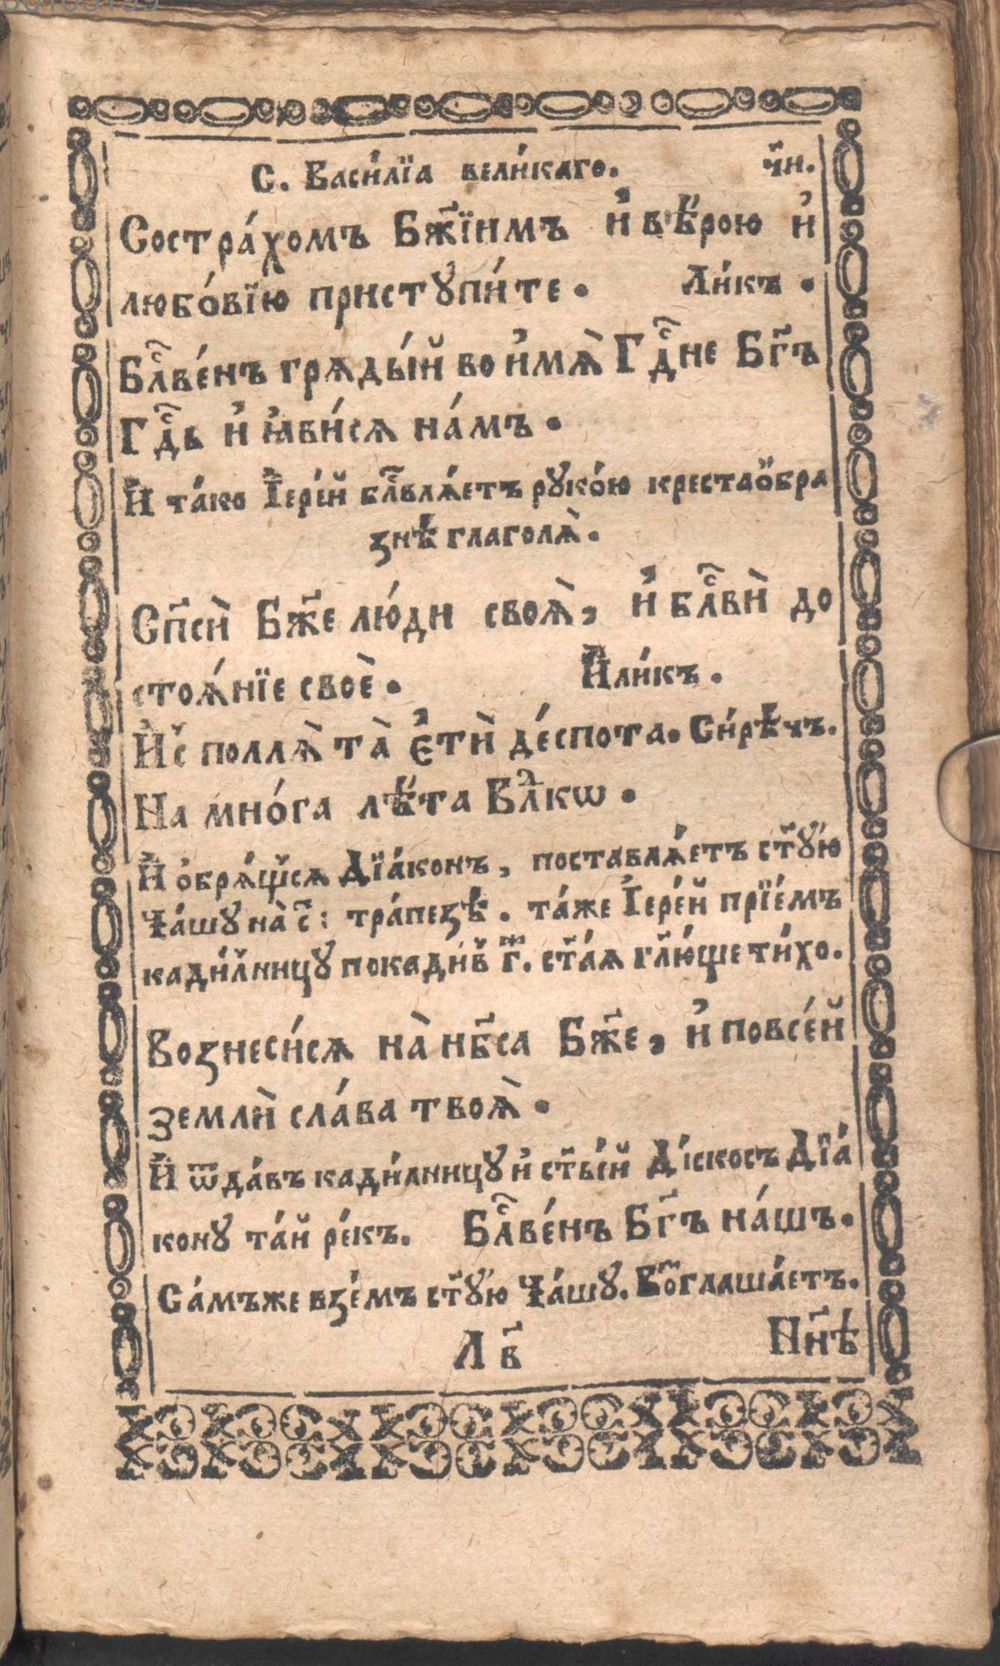 С. Васи́лїа вели́каго. ч҃и.
Состра́хомъ Бж҃їимъ и҆ вѣ́рою и҆
любо́вїю приступи́те. Ли́къ.
Бл҃ве́нъ гряды́й во и҆мѧ̀ Гдⷭ҇не Бг҃ъ
Гдⷭ҇ь и҆ ꙗ҆ви́сѧ на́мъ.
И҆ та́ко І҆ере́й бл҃влѧ́етъ руко́ю крестаѻ҆бра
знѣ глаголѧ̀.
Сп҃сѝ Бж҃е лю́ди своѧ̀, и҆ бл҃вѝ до
стоѧ́нїе своѐ. И҆ ли́къ.
И҆с̾ поллѧ̀ та̀ є҆тѝ де́спота. Си́рѣчъ.
На мно́га лѣ́та Влⷣкѡ.
И҆ ѻ҆брѧ́щ̾сѧ Дїа́конъ, поставлѧ́етъ ст҃у́ю
Ча́шу на̀ с҃: тра́пезѣ. та́же І҆ере́й прїе́мъ
кади́лницу покади́в̾ г҃. ст҃а́ѧ гл҃ю́ще ти́хо.
Вознеси́сѧ на̀ нб҃са Бж҃е, и҆ повсе́й
землѝ сла́ва твоѧ̀.
И҆ ѿда́въ кади́лницу и҆ ст҃ы́й Ді́скосъ Дїа́
кону та́й ре́къ. Бл҃ве́нъ Бг҃ъ на́шъ.
Са́мъже взе́мъ ст҃у́ю Ча́шу. Во҃глаша́етъ.
Л в҃ Нн҃ѣ